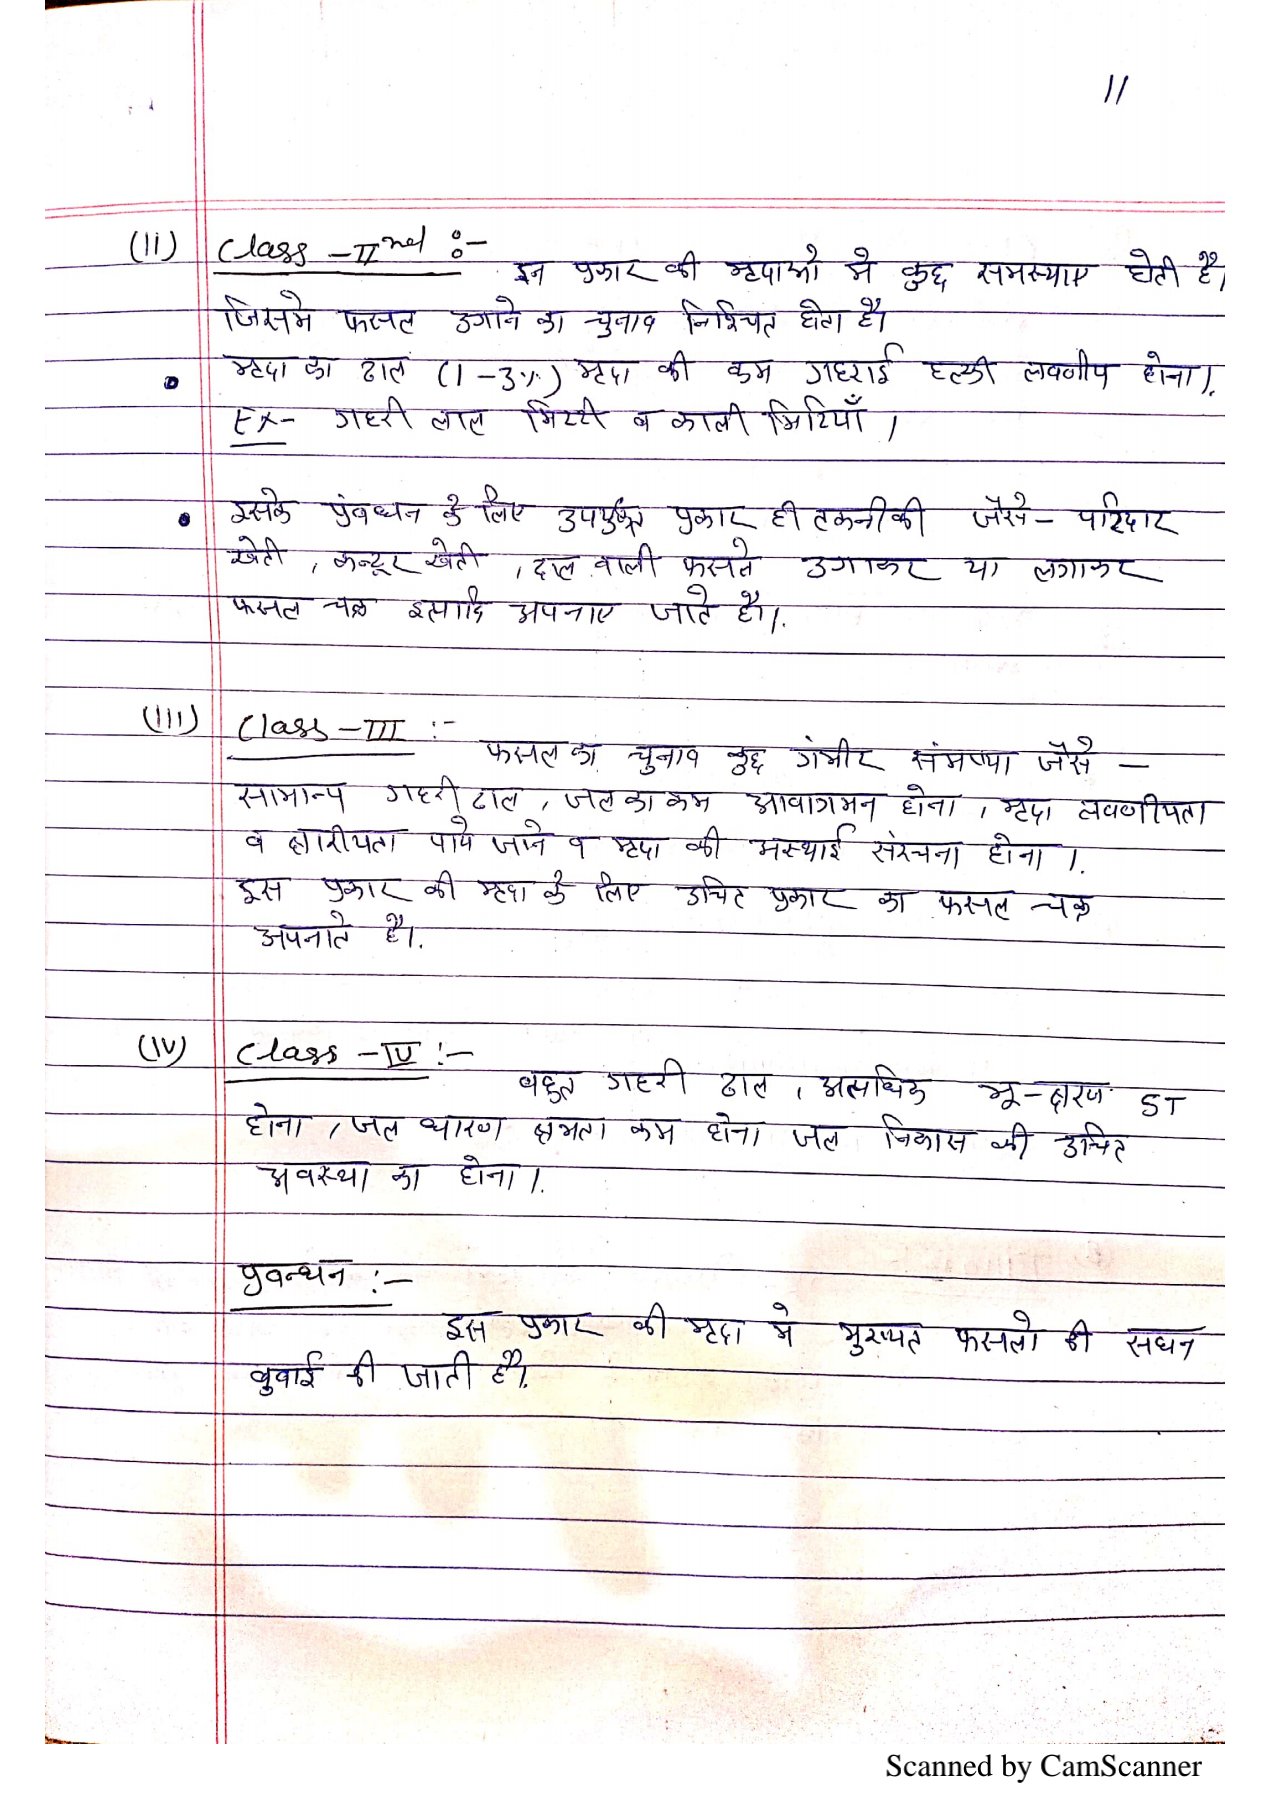 11
(ii) Class - II nd :-
इन प्रकार की मृदाओ मे कुछ समस्याए होती है।
जिसमे फसल उगाने का चुनाव निश्चित होता है।
• मृदा का ढाल (1-3%) मृदा की कम गहराई हल्की लवणीय होना।
Ex- गहरी लाल मिट्टी व काली मिटियाँ ।
• इसके प्रंबधन के लिए उपर्युक्त प्रकार ही तकनीकी जैसे- पट्टिदार
खेती , कन्टूर खेती , दाल वाली फसले उगाकर या लगाकर
फसल चक्र इत्यादि अपनाए जाते है।
(iii) Class - III :-
फसल का चुनाव कुछ गंभीर जैसे -
सामान्य गहरी ढाल , जल का कम आवागमन होना , मृदा लवणीयता
व क्षारीयता पाये जाने व मृदा की अस्थाई संरचना होना ।
इस प्रकार की मृदा के लिए उचित प्रकार का फसल चक्र
अपनाते है।
(iv) Class - IV :-
बहुत गहरी ढाल , अत्यधिक भू-क्षरण ST
होना , जल धारण क्षमता कम होना जल निकास की उचित
अवस्था का होना ।
प्रबन्धन :-
इस प्रकार की मृदा मे मुख्यत फसलो की सघन
बुवाई की जाती है।
Scanned by CamScanner